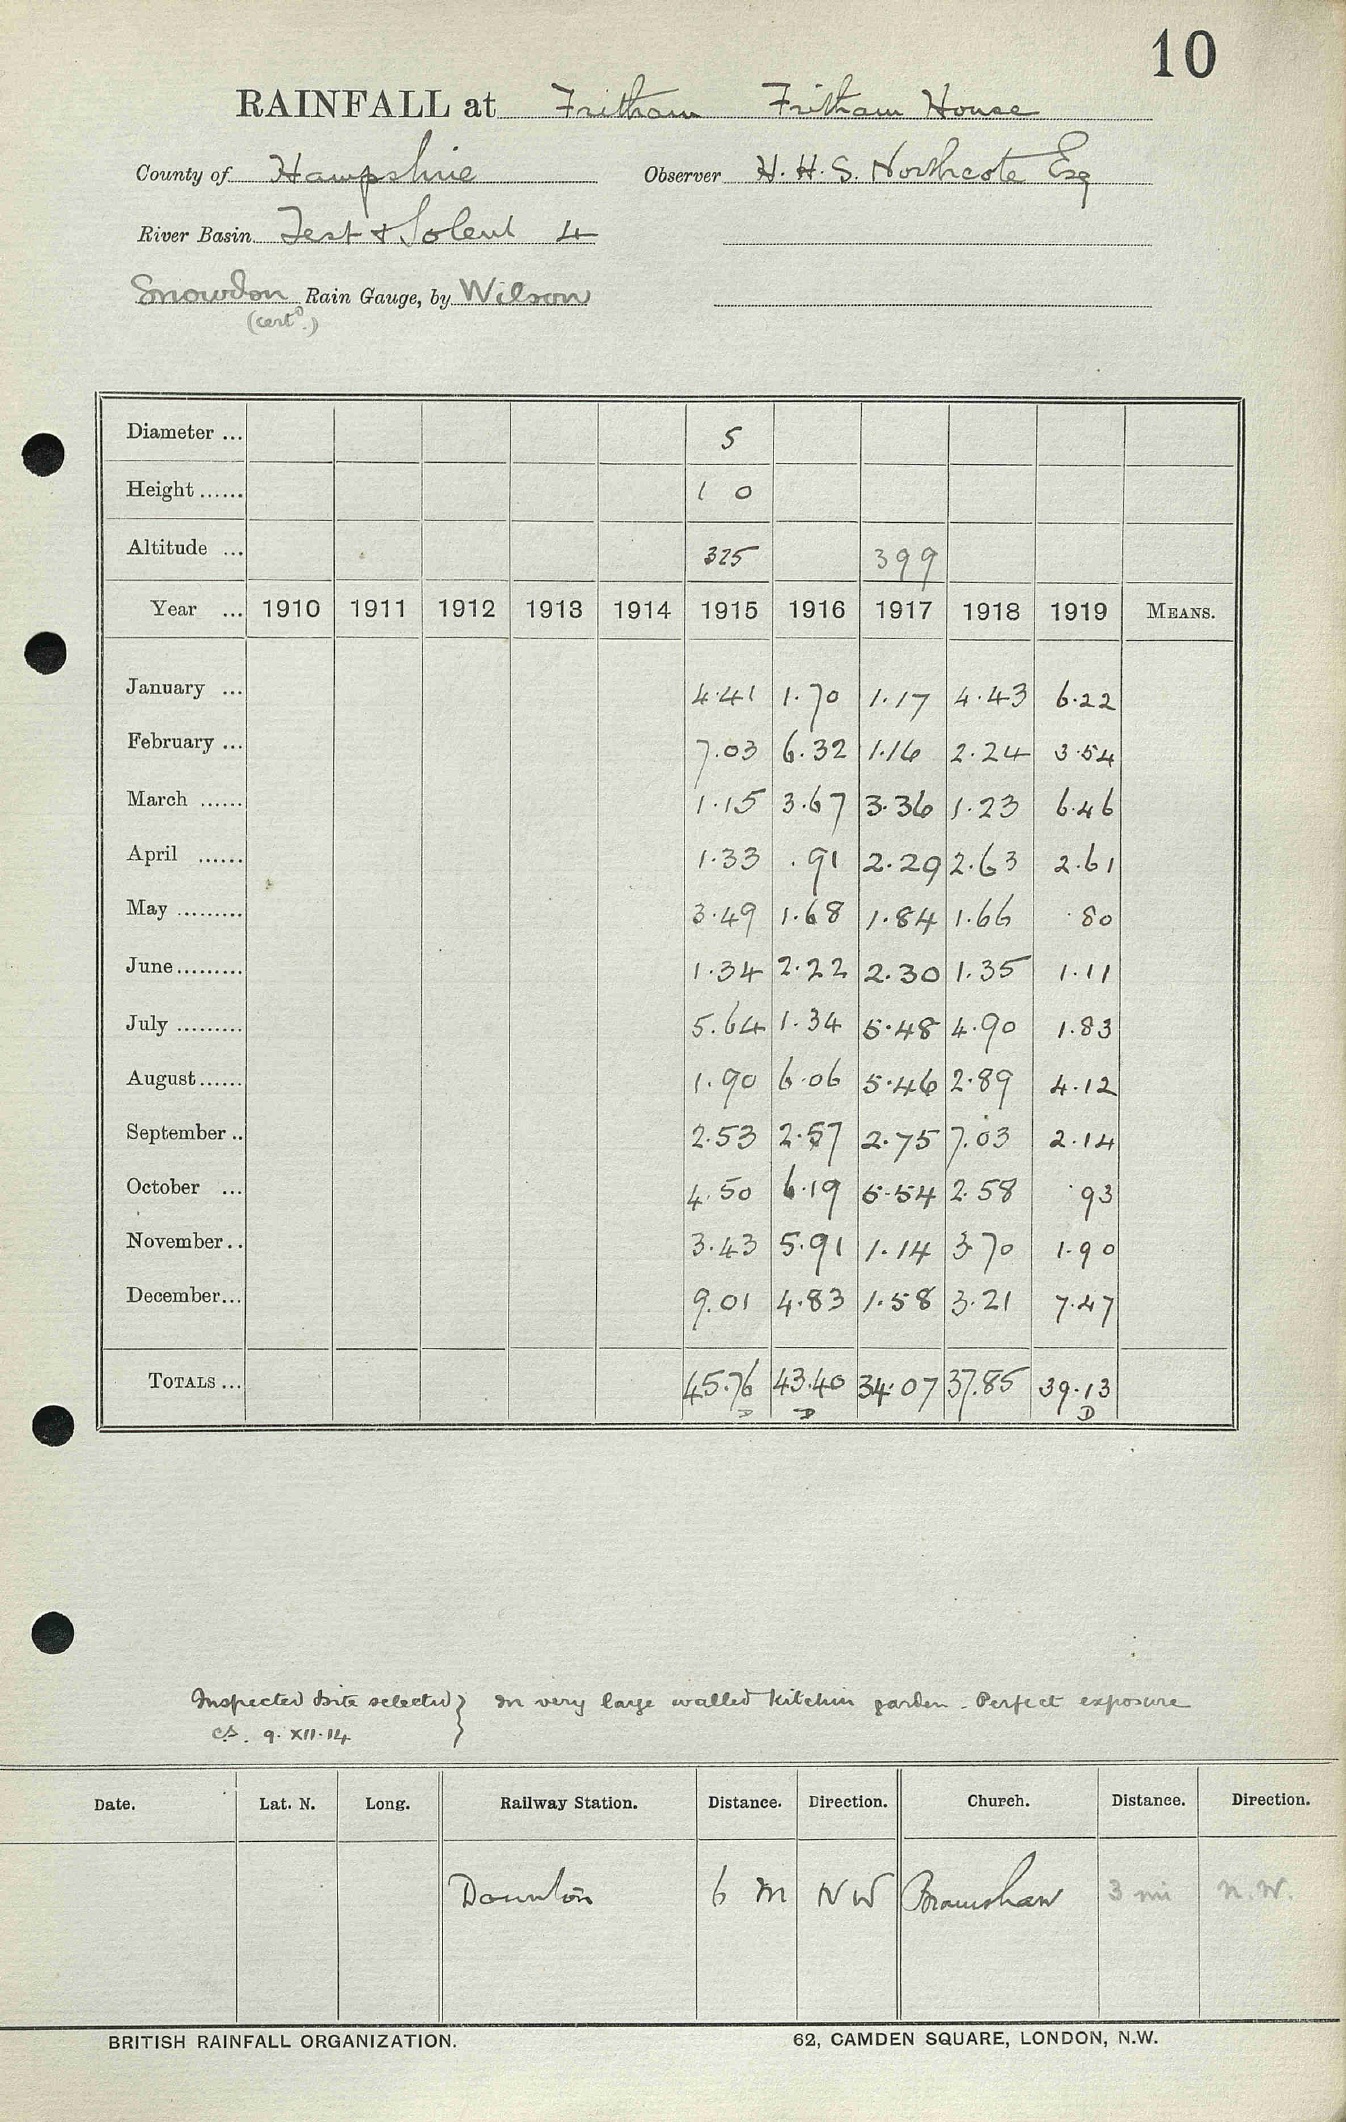 10
RAINFALL at Fritham Fritham House
County of Hampshire Observer H. H. S. Northcote Esq
River Basin Test & Solent 4
Snowdon Rain Gauge, by Wilson
(certd.)
Diameter ... 5
Height ...... 1 0
Altitude ... 325 399
Year ... 1910 1911 1912 1913 1914 1915 1916 1917 1918 1919 MEANS.
January ... 4.41 1.70 1.17 4.43 6.22
February ... 7.03 6.32 1.16 2.24 3.54
March ...... 1.15 3.67 3.36 1.23 6.46
April ...... 1.33 .91 2.29 2.63 2.61
May ......... 3.49 1.68 1.84 1.66 .80
June ......... 1.34 2.22 2.30 1.35 1.11
July ......... 5.64 1.34 5.48 4.90 1.83
August ...... 1.90 6.06 5.46 2.89 4.12
September .. 2.53 2.57 2.75 7.03 2.14
October ... 4.50 6.19 5.54 2.58 .93
November .. 3.43 5.91 1.14 3.70 1.90
December ... 9.01 4.83 1.58 3.21 7.47
TOTALS ... 45.76 43.40 34.07 37.85 39.13
D D D
Inspected & site selected } In very large walled kitchin garden. Perfect exposure
cs. 9.XII.14
Date. Lat. N. Long. Railway Station. Distance. Direction. Church. Distance. Direction.
Downton 6 M NW Bramshaw 3 mi N.W.
BRITISH RAINFALL ORGANIZATION. 62, CAMDEN SQUARE, LONDON, N.W.